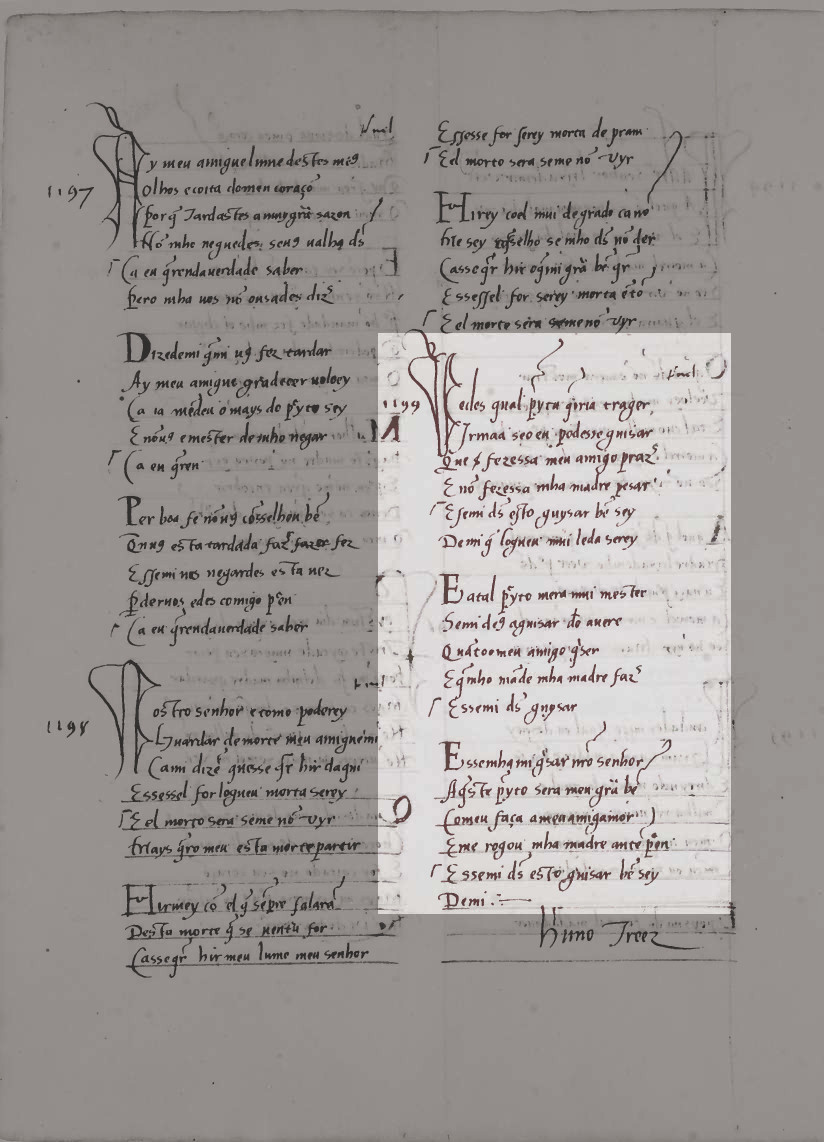 R'nel
1197
Ay meu amigue lume destes me9
Olhos ecoita domeu coraçõ
Por q̃ Tardastes amuy grã sazon
Nõ mho neguedes, seu9 ualha d's
Ca eu q̃renda uerdade saber
Pero mha uos nõ ousades diz̃
Dizedemi q̃mi u9 fez tardar
Ay meu amigue gradecer uoloey
Ca ia medeu o mays do p̃yto sey
Enõu9 emester demho negar
Ca eu q̃ren
Per boa fe nõu9 cõsselhou bẽ
Qnu9 esta tardada faz̃ fez
Essemi uos negardes esta uez
p̃deruos edes comigo p̃en
Ca eu q̃renda uerdade saber
1198
R'nel
Nostro senhor ecomo poderey
Guardar demorte meu amiguemi
Cami dizẽ quesse q̃r hir daqui
Essessel for logueu morta serey
E el morto sera seme nõ uyr
Mays q̃ro meu esta morte partir
Hirmey cõ el q̃ sẽpre falarã
Desta morte q̃ se uentu for
Casseq̃r hir meu lume meu senhor
Essesse for serey morta de pram
E el morto sera seme nõ uyr
Hirey coel mui degrado ca nõ
Me sey cõsselho se mho d's nõ der
Casseq̃r hir oq̃mi grã bẽ q̃r
Essessel for serey morta entõ
E el morto sera seme nõ uyr
R'nel
1199
Vedes qual p̃yta q̃ria trager
Irmaa seo eu podesse guisar
Que fezessa meu amigo praz̃
E nõ fezessa mha madre pesar
Esemi d's esto guysar bẽ sey
Demi q̃ logueu mui leda serey
Eatal p̃yto mera mui mester
Semi de9 aguisar do auere
Quãtoo meu amigo q̃ser
Eq̃mho mãde mha madre faz̃
Essemi d's guysar
Essemha mi g̃sar nr̃o senhor
Aq̃ste p̃yto sera meu grã bẽ
Comeu faça amor
Eme rogou mha madre ante p̃en
Essemi d's esto guisar bẽ sey
Demi
Nuno Treez